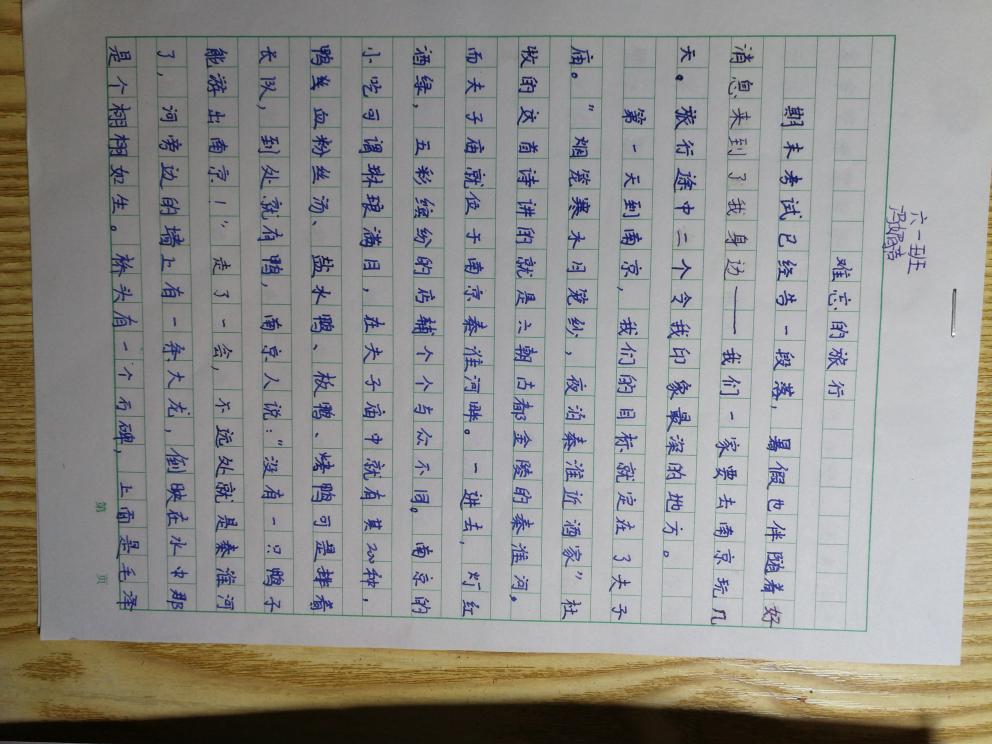 六一班
难忘的旅行
期末考试已经告一段落，暑假也伴随着好
消息来到了我身边——我们一家要去南京玩几
天。旅行途中二个令我印象最深的地方。
第一天到南京，我们的目标就定在了夫子
庙。“烟笼寒水月笼纱，夜泊秦淮近酒家”杜
牧的这首诗讲的就是六朝古都金陵的秦淮河。
而夫子庙就位于南京秦淮河畔。一进去，灯红
酒绿，五彩缤纷的店铺个个与众不同。南京的
小吃可谓琳琅满目，在夫子庙中就有其200种，
鸭丝血粉丝汤、盐水鸭、板鸭、烤鸭可是排着
长队，到处就有鸭，南京人说：“没有一只鸭子
能游出南京！”走了一会，不远处就是秦淮河
了，河旁边的墙上有一条大龙，倒映在水中那
是个栩栩如生。桥头有一个石碑，上面是毛泽
第 页